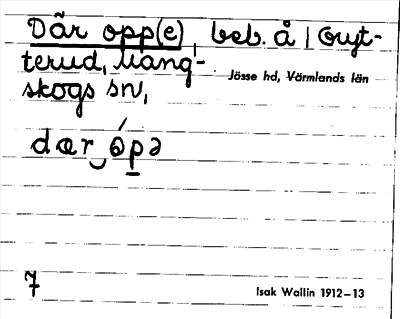 Där opp(e), beb. å | Gryt-
terud, Mang-
skogs sn,
Jösse hd, Värmlands län
dar‿ópə
7
Isak Wallin 1912–13